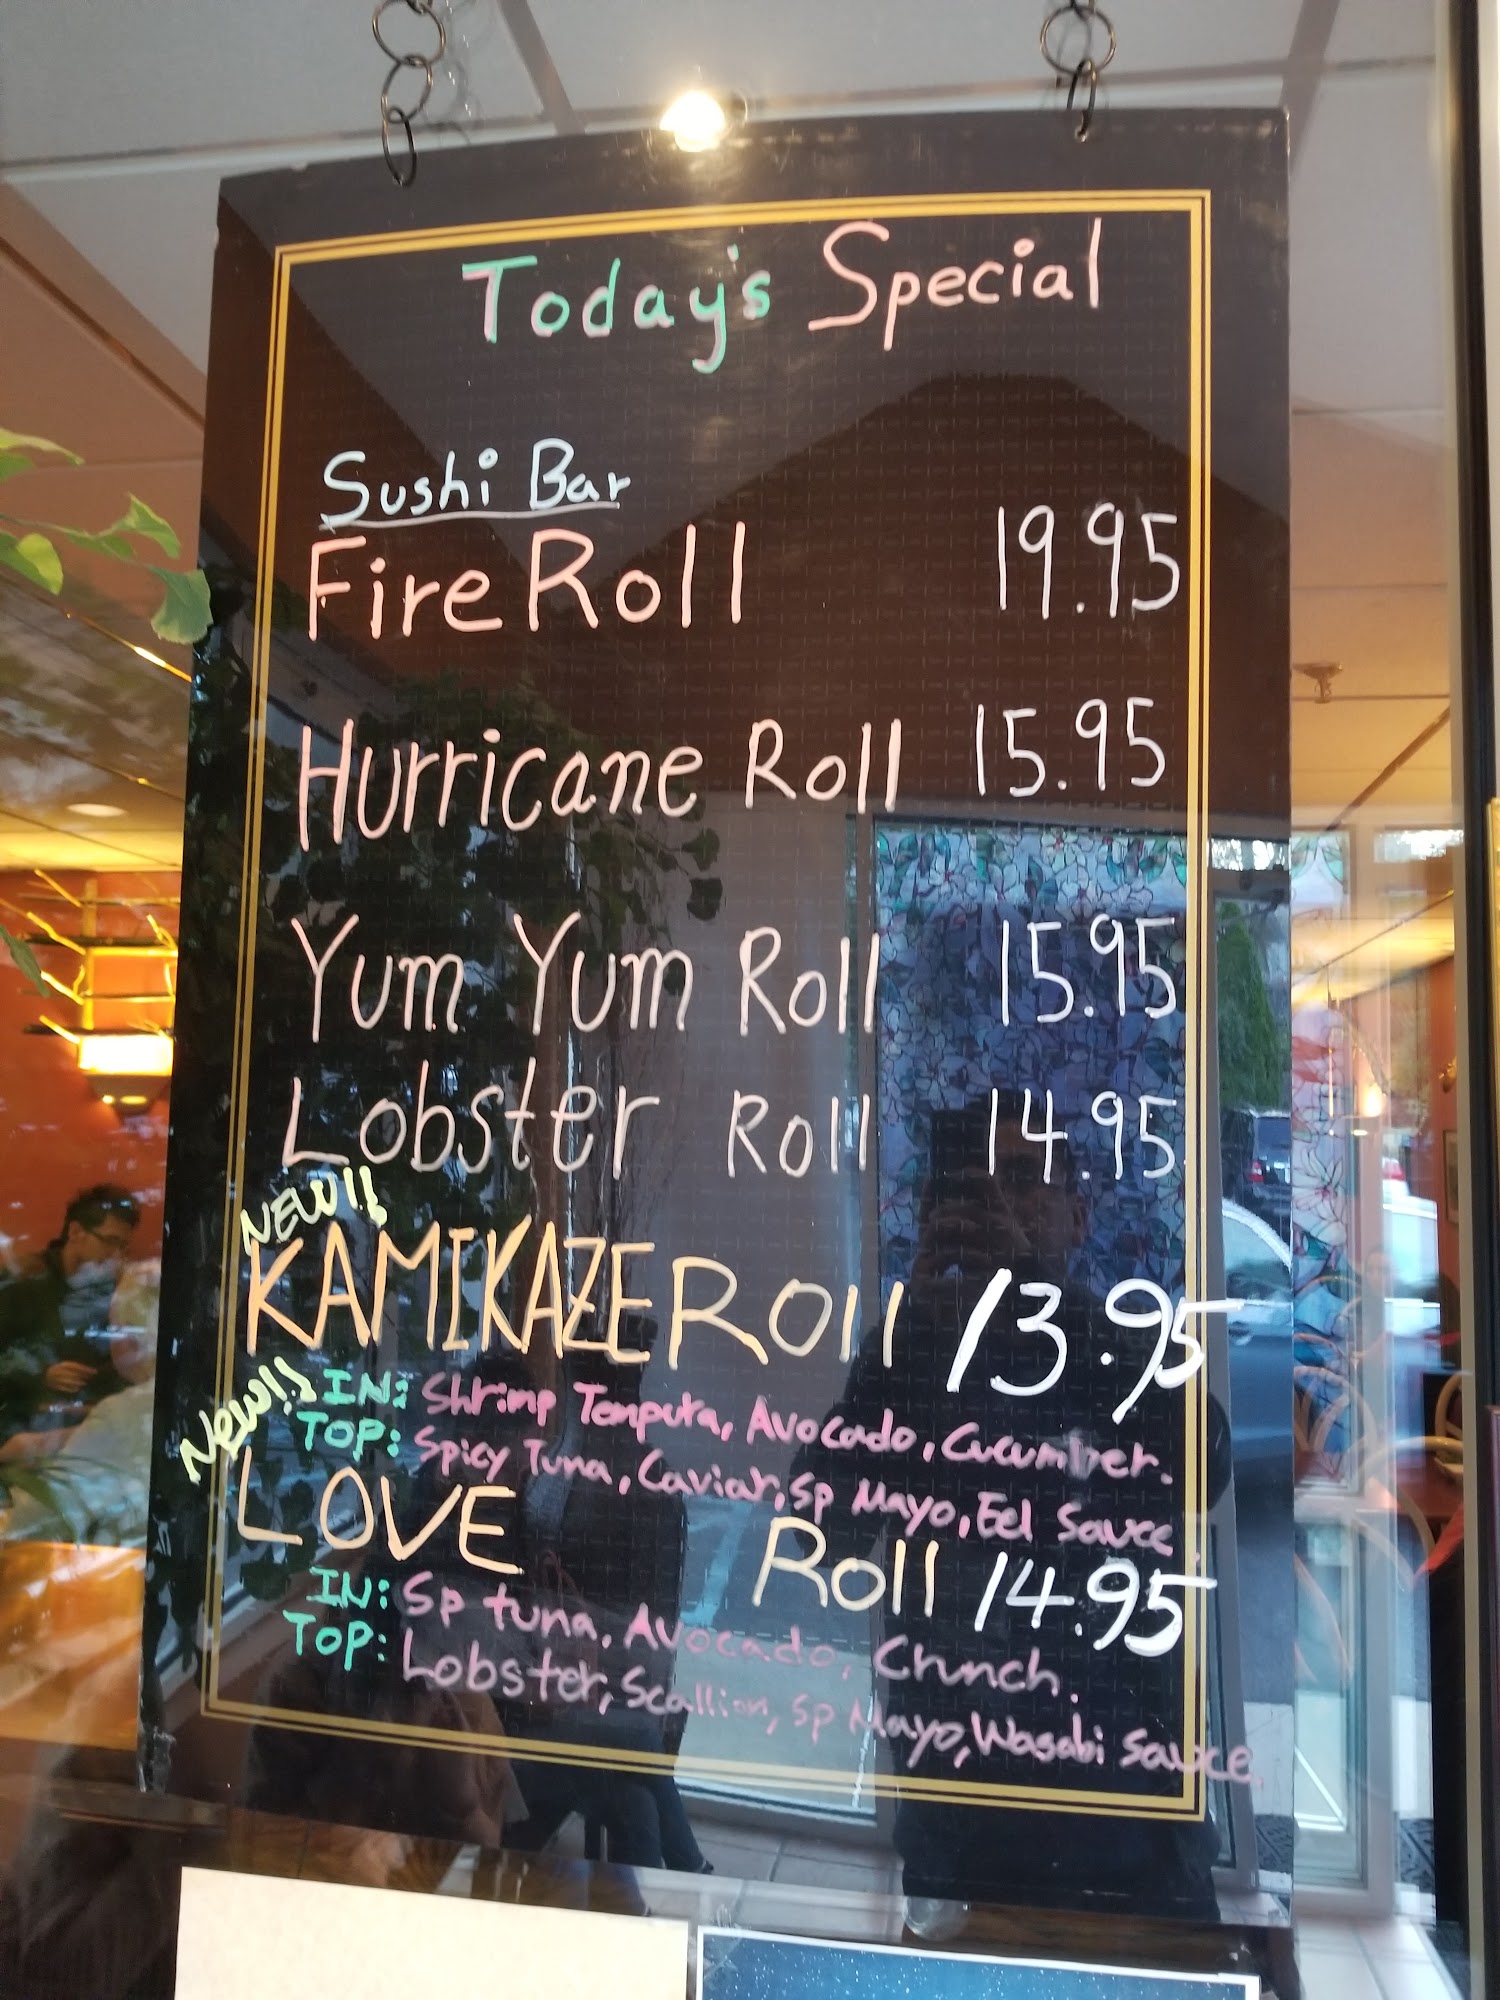 Today's Special
Sushi Bar
Fire Roll 19.95
Hurricane Roll 15.95
Yum Yum Roll 15.95
Lobster Roll 14.95
NEW!!
KAMIKAZE Roll 13.95
IN: Shrimp Tempura, Avocado, Cucumber.
TOP: Spicy Tuna, Caviar, Sp Mayo, Eel Sauce.
New!!
LOVE Roll 14.95
IN: Sp tuna. Avocado, Crunch.
TOP: Lobster, Scallion, Sp Mayo, Wasabi Sauce.